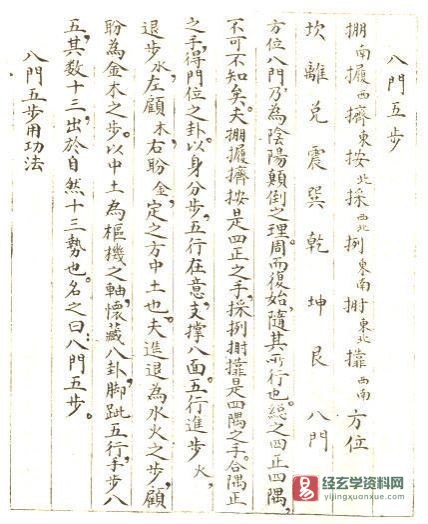 八門五步
掤南 攦西 擠東 按北 採西北 挒東南 挒東北 攠西南 方位
坎離兌震巽乾坤艮 八門
方位八門，乃為陰陽顛倒之理，周而復始，隨其所行也。總之四正四隅，
不可不知矣。夫掤攦擠按是四正之手，採挒肘靠是四隅之手。合隅正
之手，得門位之卦。以身分步，五行在意，支撐八面。五行進步火，
退步水，左顧木，右盼金，定之方中土也。夫進退為水火之步，顧
盼為金木之步。以中土為樞機之軸，懷藏八卦，脚跐五行，手步八
五，其數十三，出於自然十三勢也。名之曰：八門五步。
八門五步用功法
易
经玄学资料网
yijingxuanxue.com